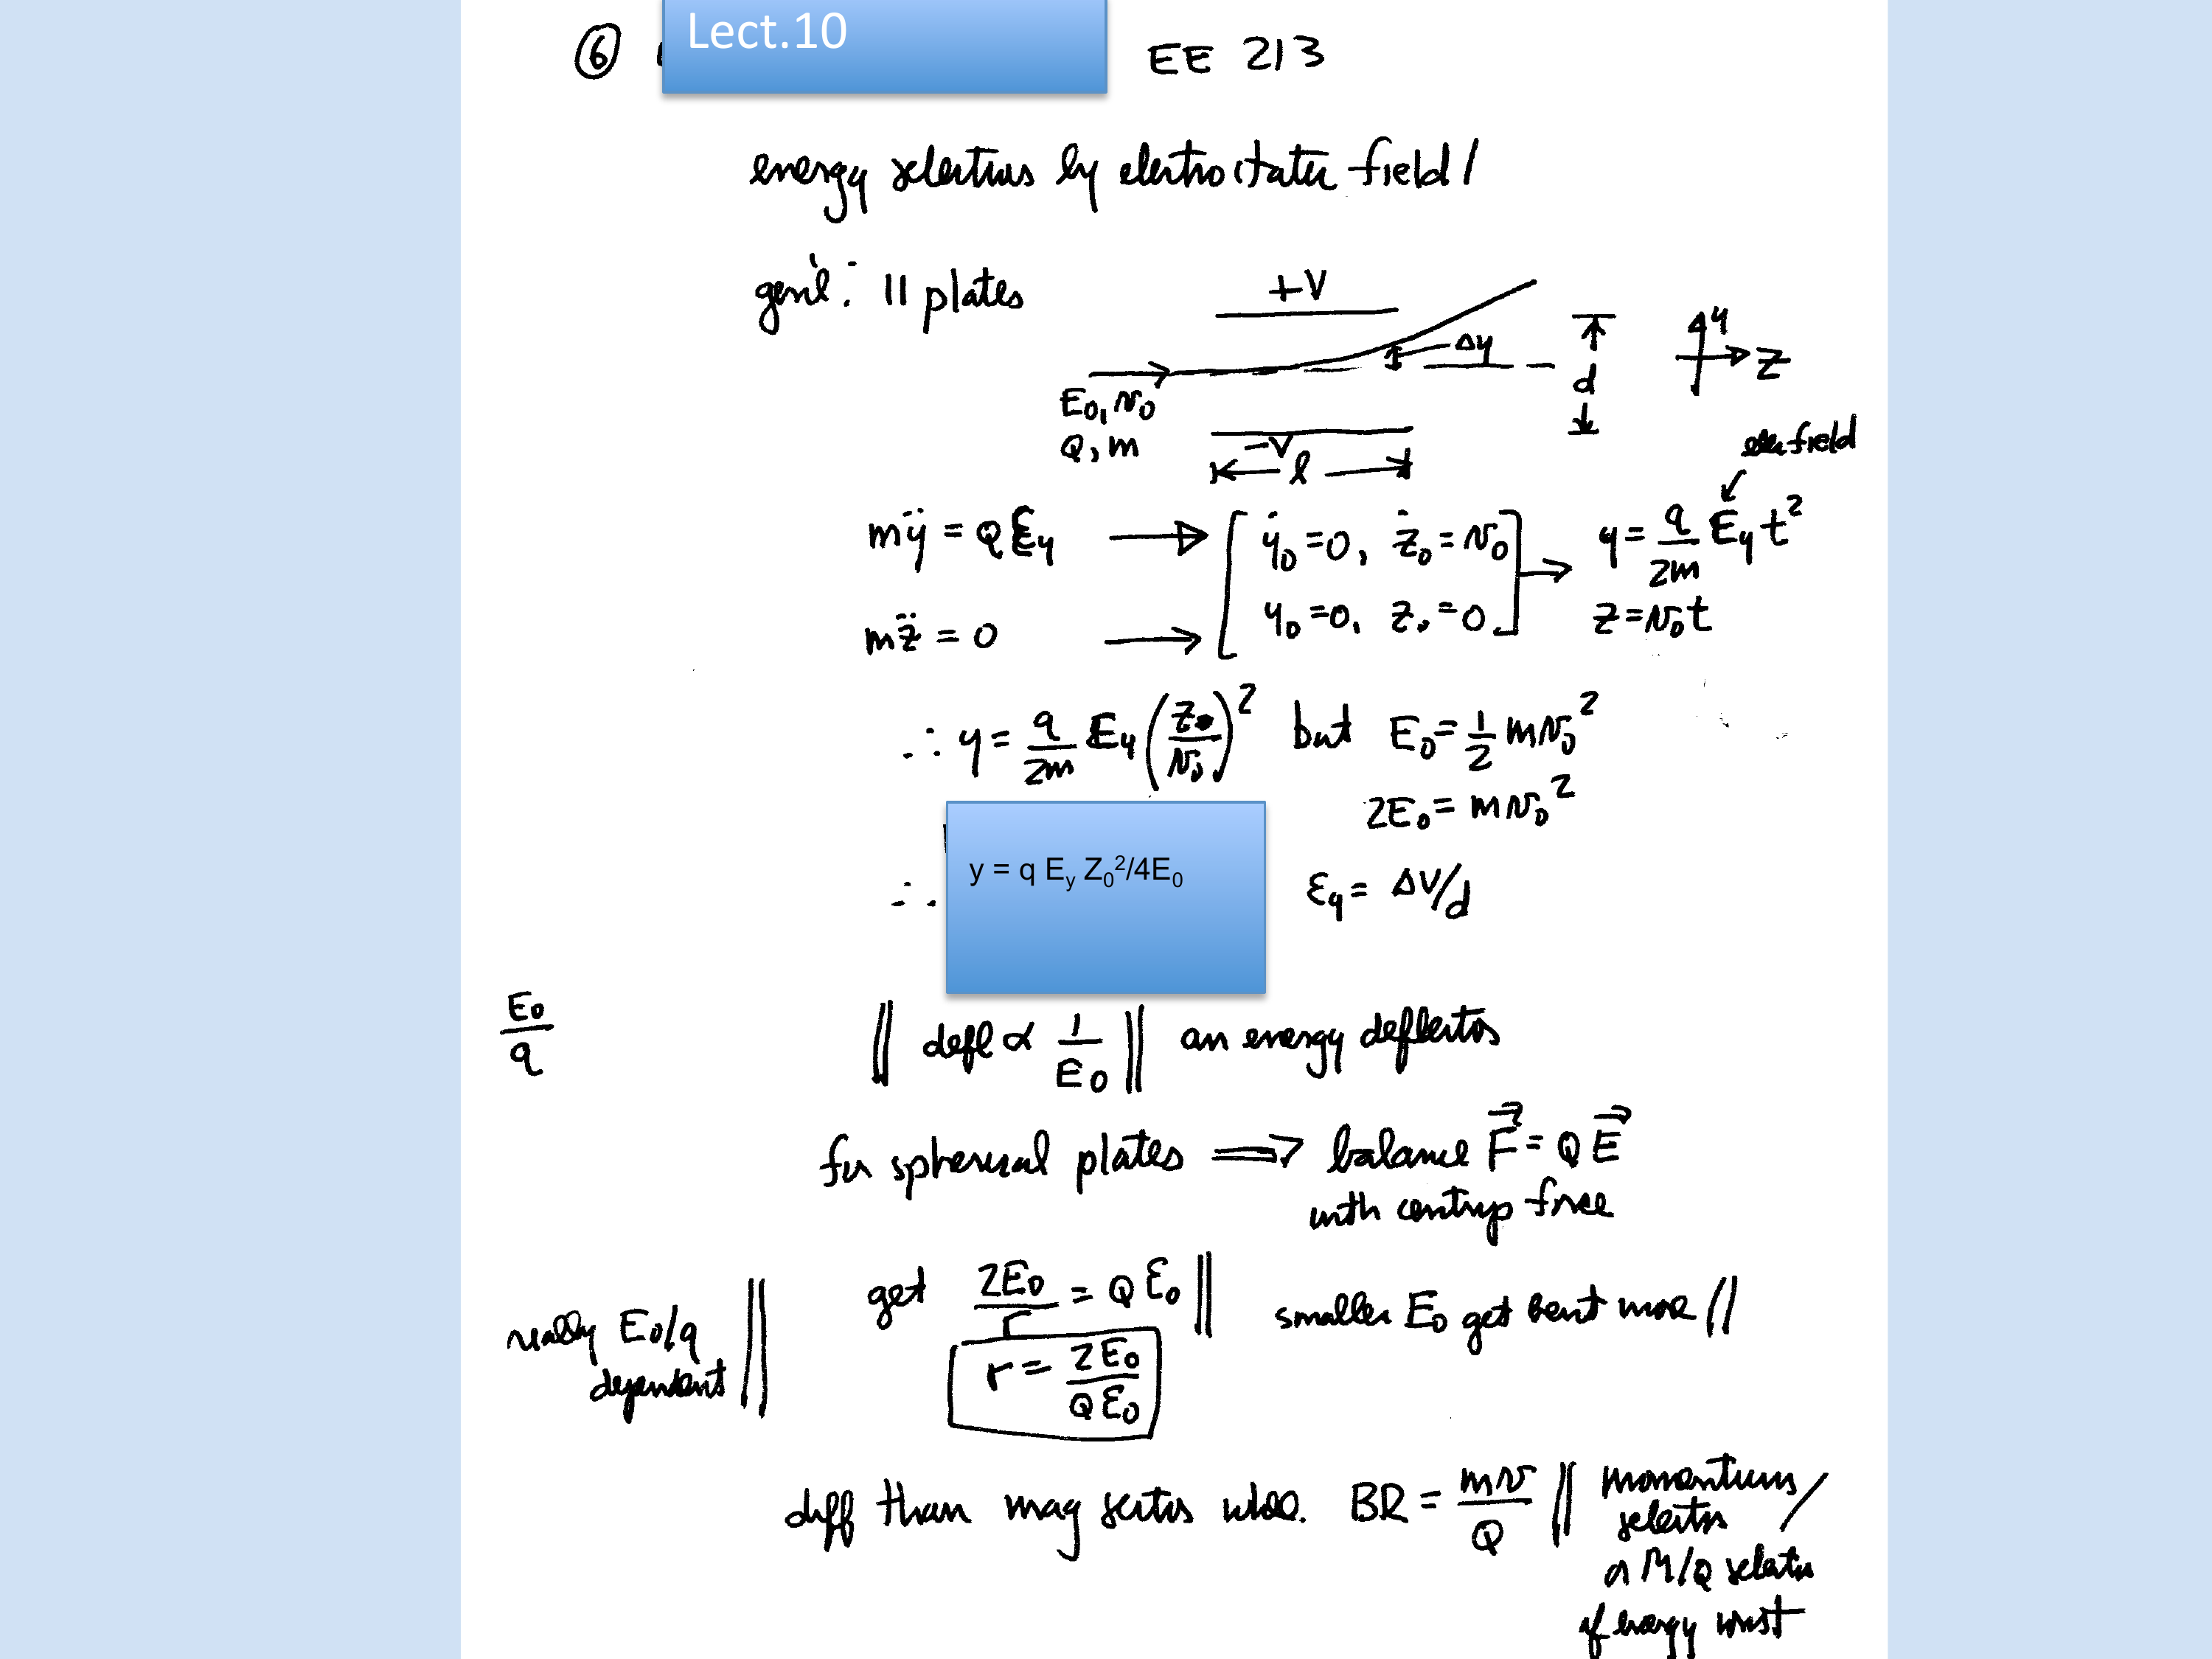 ⑥ Lect.10 EE 213
energy selectors by electrostatic field /
gen'l : || plates
+V
Δy
d
y
z
E₀, v₀
Q, m
-V
l
elec field
mÿ = Qℰy → [ ẏ₀ = 0, ż₀ = v₀ ] → y = q/2m ℰy t²
mz̈ = 0 → [ y₀ = 0, z₀ = 0 ] z = v₀t
∴ y = q/2m ℰy (z₀/v₀)² but E₀ = 1/2 mv₀²
2E₀ = mv₀²
∴ y = q Ey Z₀²/4E₀ ℰy = ΔV/d
E₀/q
|| defl ∝ 1/E₀ || an energy deflector
for spherical plates ⟹ balance F⃗ = QE⃗
with centrip force
get 2E₀/r = Qℰ₀ || smaller E₀ get bent more //
really E₀/q
dependent ||
r = 2E₀/Qℰ₀
diff than mag sector where BR = mv/Q || momentum
selector /
or M/Q selector
if energy const